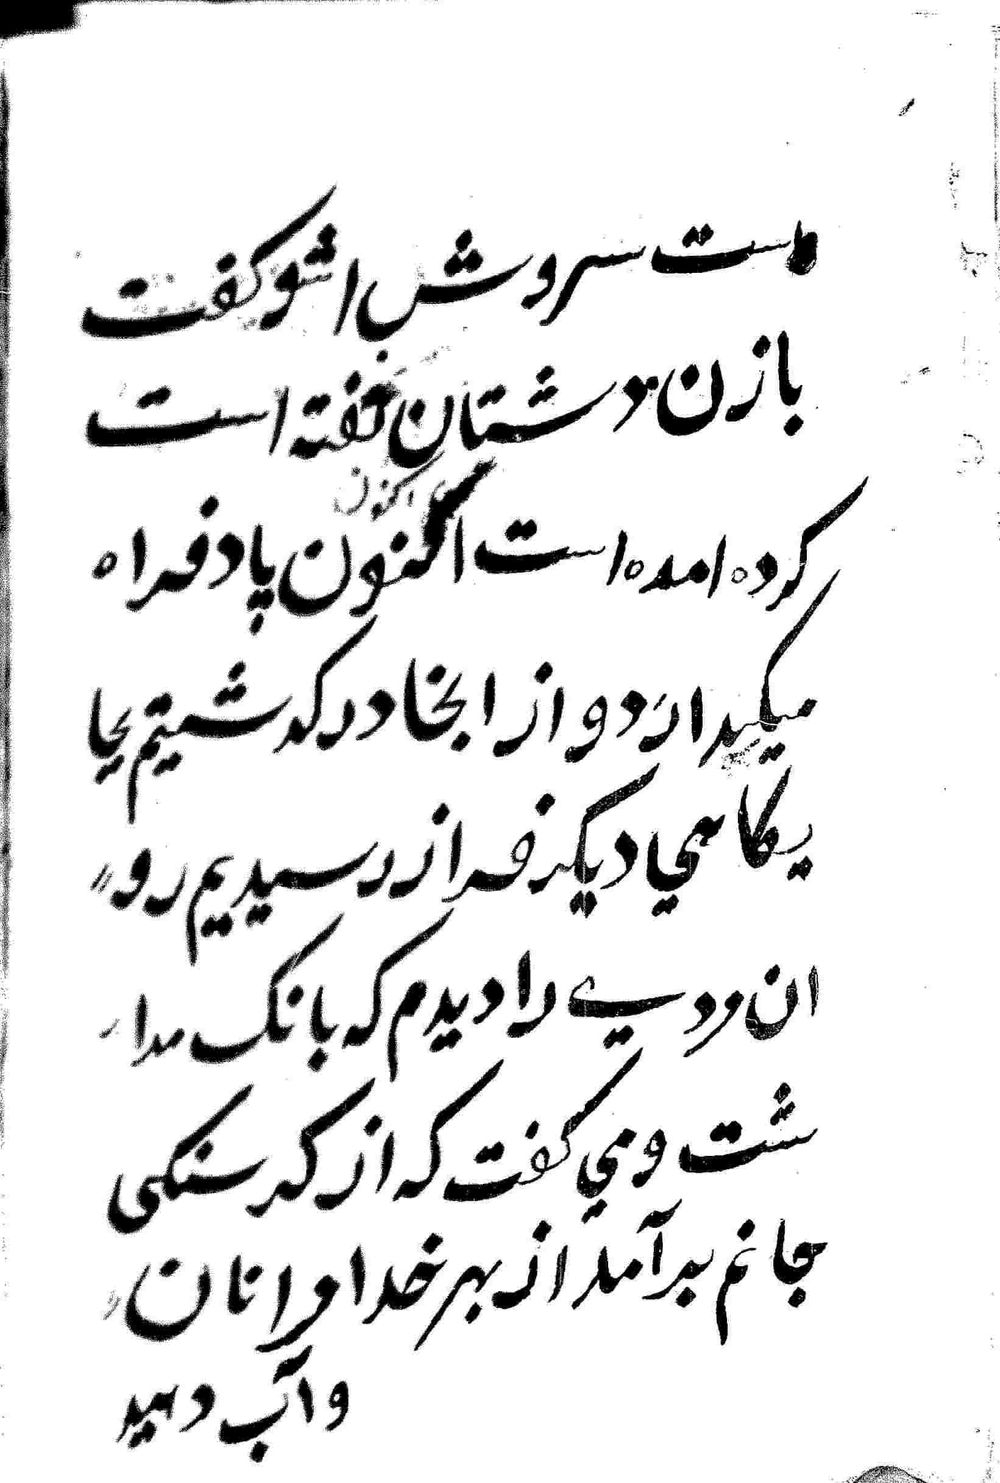 است سروش اشو کفت
بازن دشتان خفته است
اکنون
کرده امده است اکنون پادفراه
میکیدارَد و از ابخا درکدشیتم بجا
یکاهی جا دیکر فراز رسیدیم رو
ان مردی را دیدم که بانک مدا
شت و می کفت که از کرسنکی
جانم بدر آمد از بهر خدا مرا نان
و آب دهید